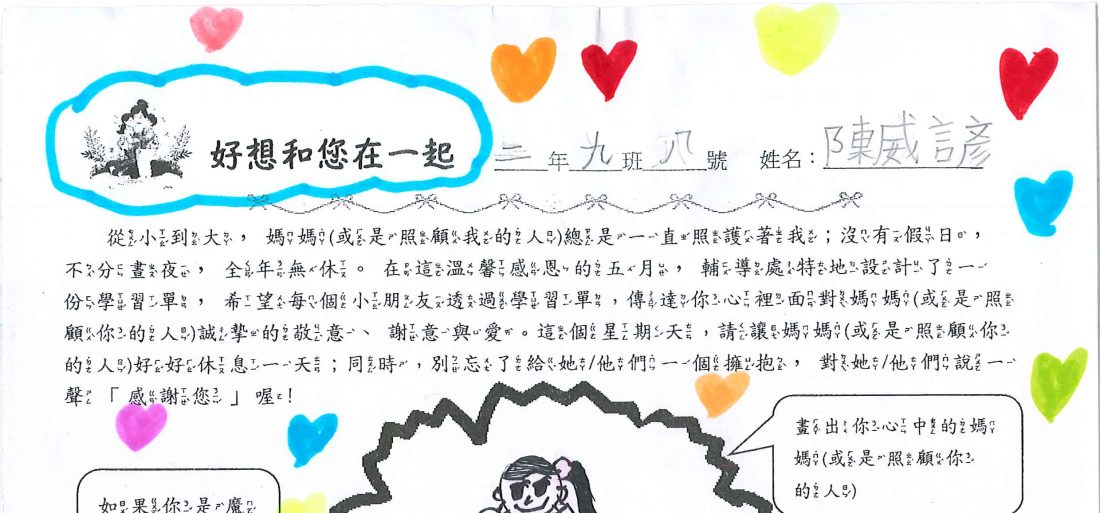 好想和您在一起 二年九班八號 姓名：陳威諺
從小到大，媽媽(或是照顧我的人)總是一直照護著我；沒有假日，
不分晝夜，全年無休。在這溫馨感恩的五月，輔導處特地設計了一
份學習單，希望每個小朋友透過學習單，傳達你心裡面對媽媽(或是照
顧你的人)誠摯的敬意、謝意與愛。這個星期天，請讓媽媽(或是照顧你
的人)好好休息一天；同時，別忘了給她/他們一個擁抱，對她/他們說一
聲「感謝您」喔！
畫出你心中的媽
媽(或是照顧你
的人)
如果你是魔